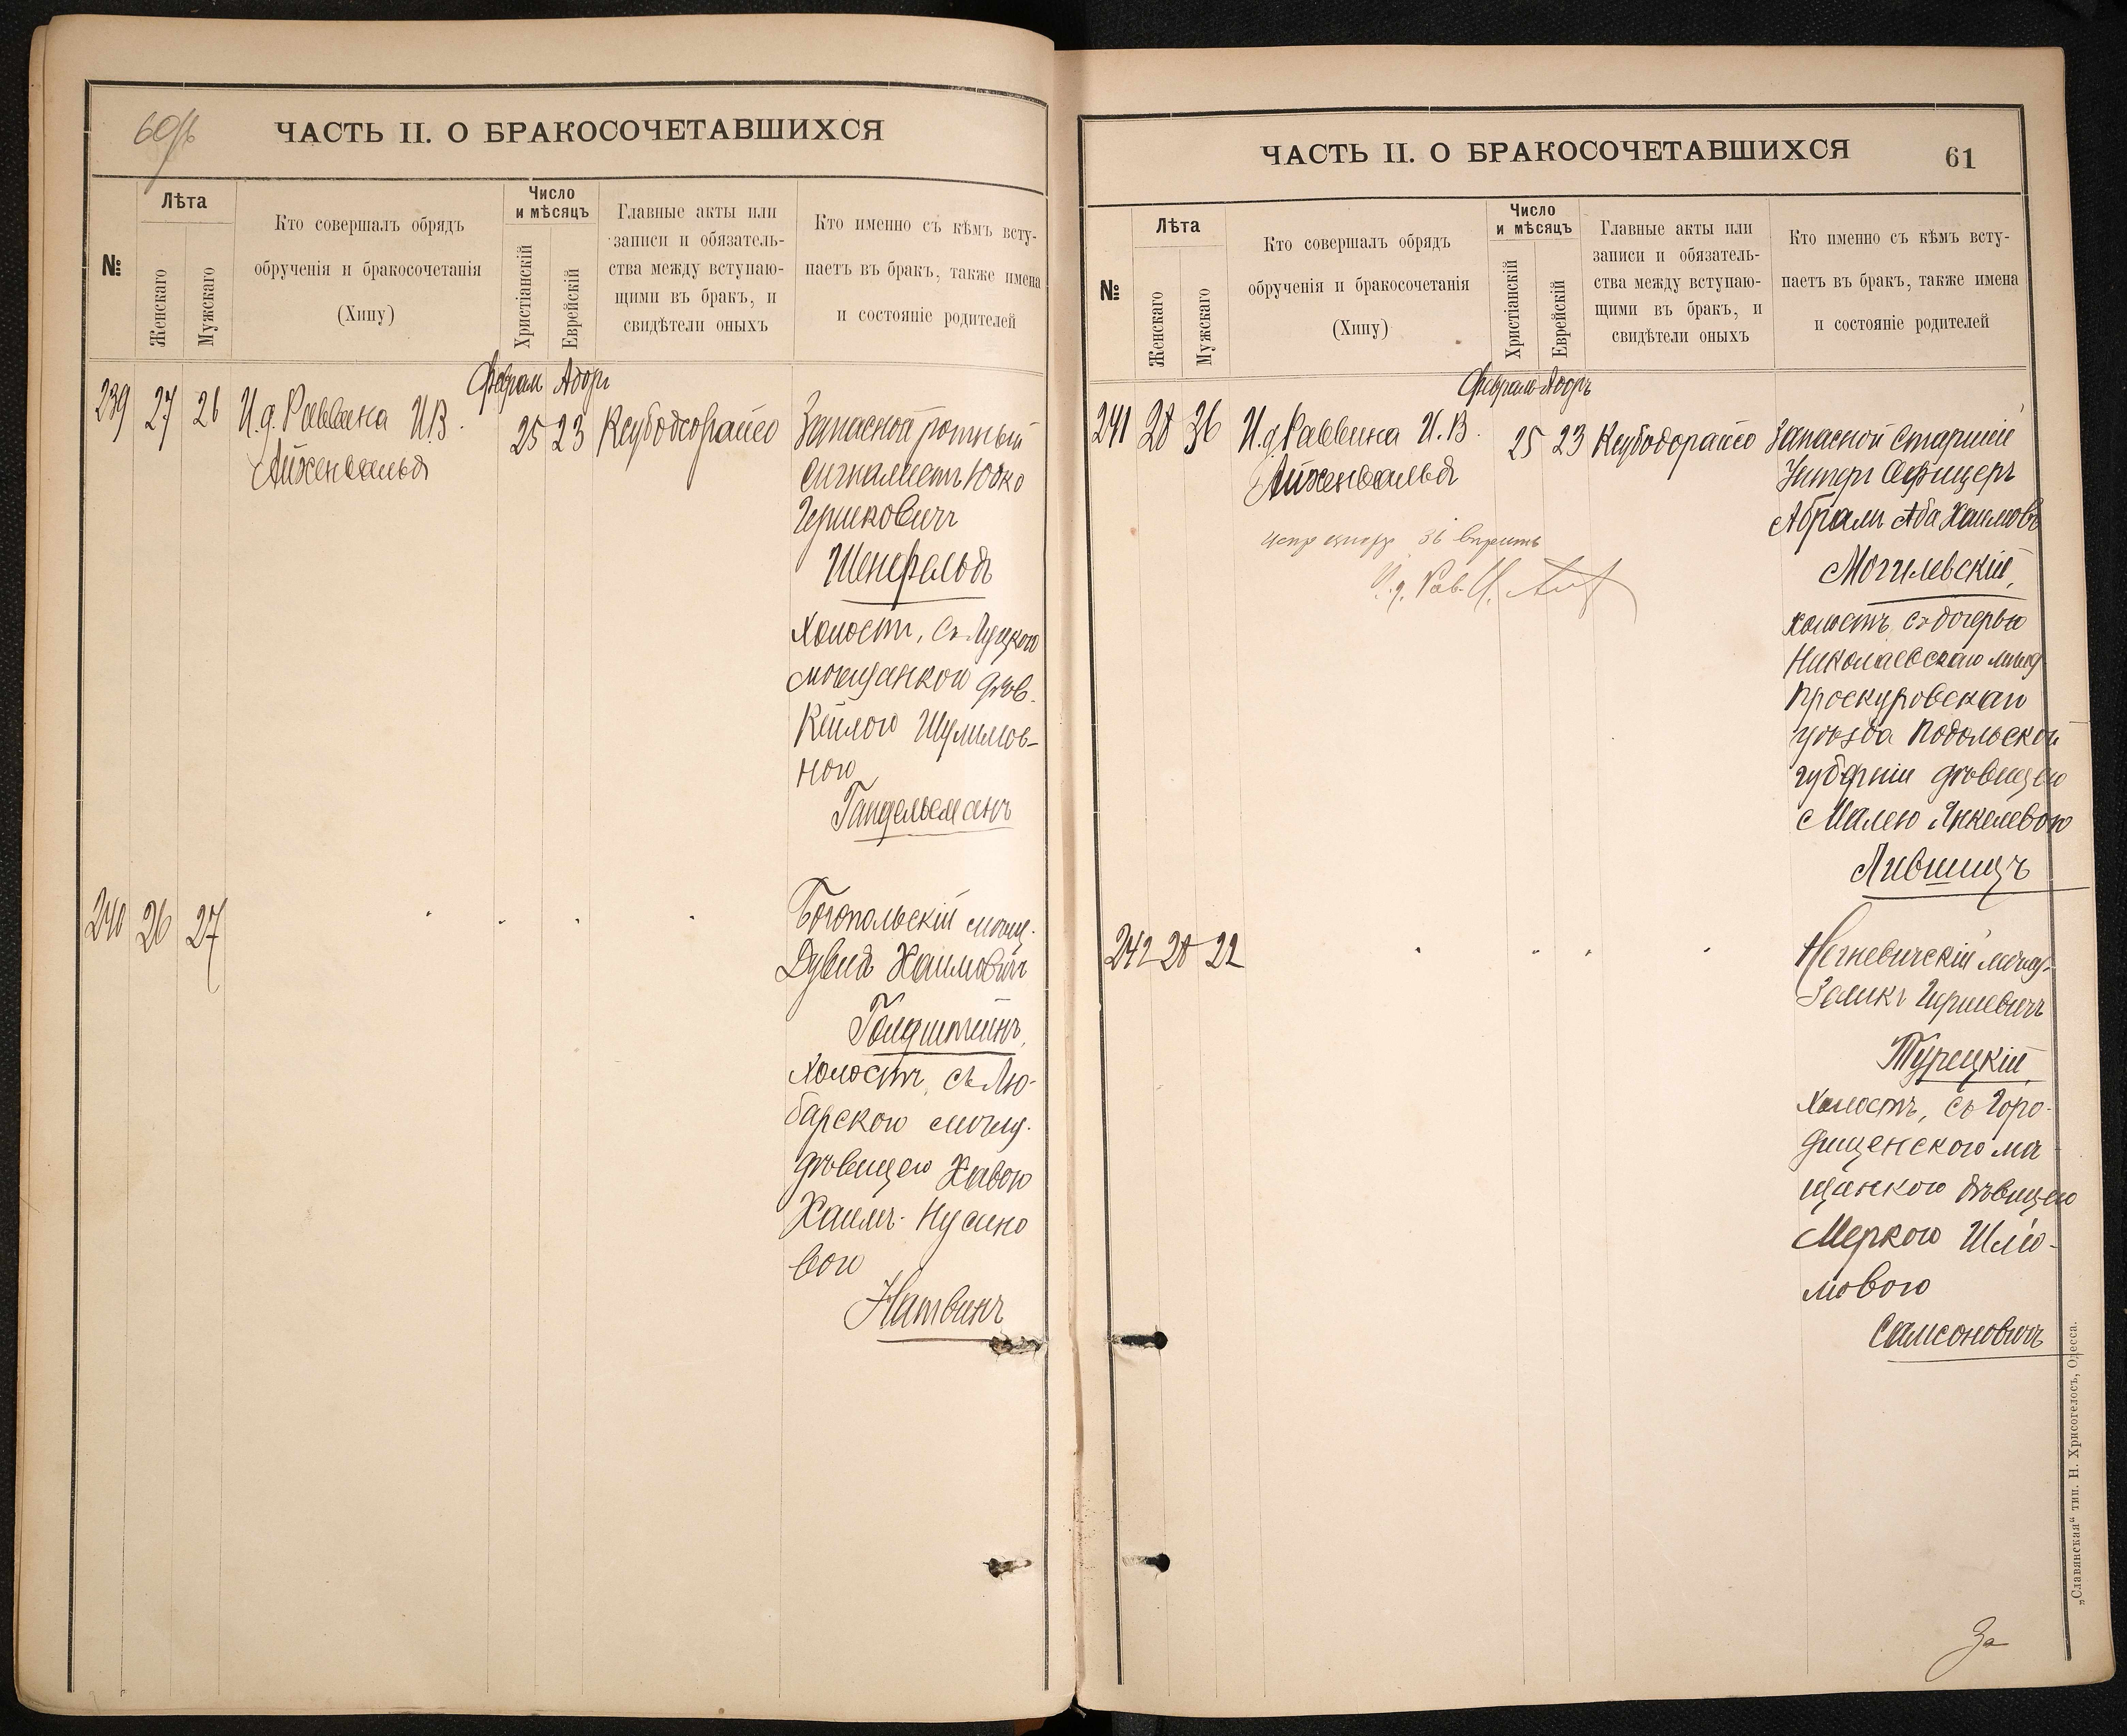 60/б
ЧАСТЬ II. О БРАКОСОЧЕТАВШИХСЯ
№
Лѣта
Женскаго
Мужскаго
Кто совершалъ обрядъ
обрученія и бракосочетанія
(Хипу)
Число
и мѣсяцъ
Христіанскій
Еврейскій
Главные акты или
записи и обязатель-
ства между вступаю-
щими въ бракъ, и
свидѣтели оныхъ
Кто именно съ кѣмъ всту-
паетъ въ бракъ, также имена
и состояніе родителей
Февраль Адоръ
239 27 26 И.д. Раввина И.В. 25 23
Айженвальд
Запасной ротный
сигналистъ Юдко
Гершковичъ
Шенфельдъ
холостъ, съ Луцкою
мѣщанкою дѣв.
Кейлою Шулимов-
ною
Гандельманъ
240 26 27
Богопольскій мѣщ.
Дувидъ Хаимовичъ
Голдштейнъ,
холостъ, съ Лю-
барскою мѣщ.
дѣвицею Хавою
Хаимъ-Нусино
вою
Натвинъ
ЧАСТЬ II. О БРАКОСОЧЕТАВШИХСЯ
61
№
Лѣта
Женскаго
Мужскаго
Кто совершалъ обрядъ
обрученія и бракосочетанія
(Хипу)
Число
и мѣсяцъ
Христіанскій
Еврейскій
Главные акты или
записи и обязатель-
ства между вступаю-
щими въ бракъ, и
свидѣтели оныхъ
Кто именно съ кѣмъ всту-
паетъ въ бракъ, также имена
и состояніе родителей
Февраль Адоръ
241 28 36 И.д. Раввина И.В. 25 23
Айженвальд
36 вѣрить
И.д. Рав. И.
Запасной старшій
Унтеръ Офицеръ
Абрамъ Аба Хаимовъ
Могилевскій,
холостъ, съ дочерью
Николаевскаго мѣщ
Проскуровскаго
уѣзда Подольской
губерніи дѣвицею
Малею Янкелевою
Лившицъ
242 28 22
Негневичскій мѣщ.
Зеликъ Гершевичъ
Турецкій,
холостъ, съ Горо-
дищенскою мѣ
щанкою дѣвицею
Меркою Шліо-
мовою
Самсоновичъ
За
„Славянская“ тип. Н. Хрисогелосъ, Одесса.